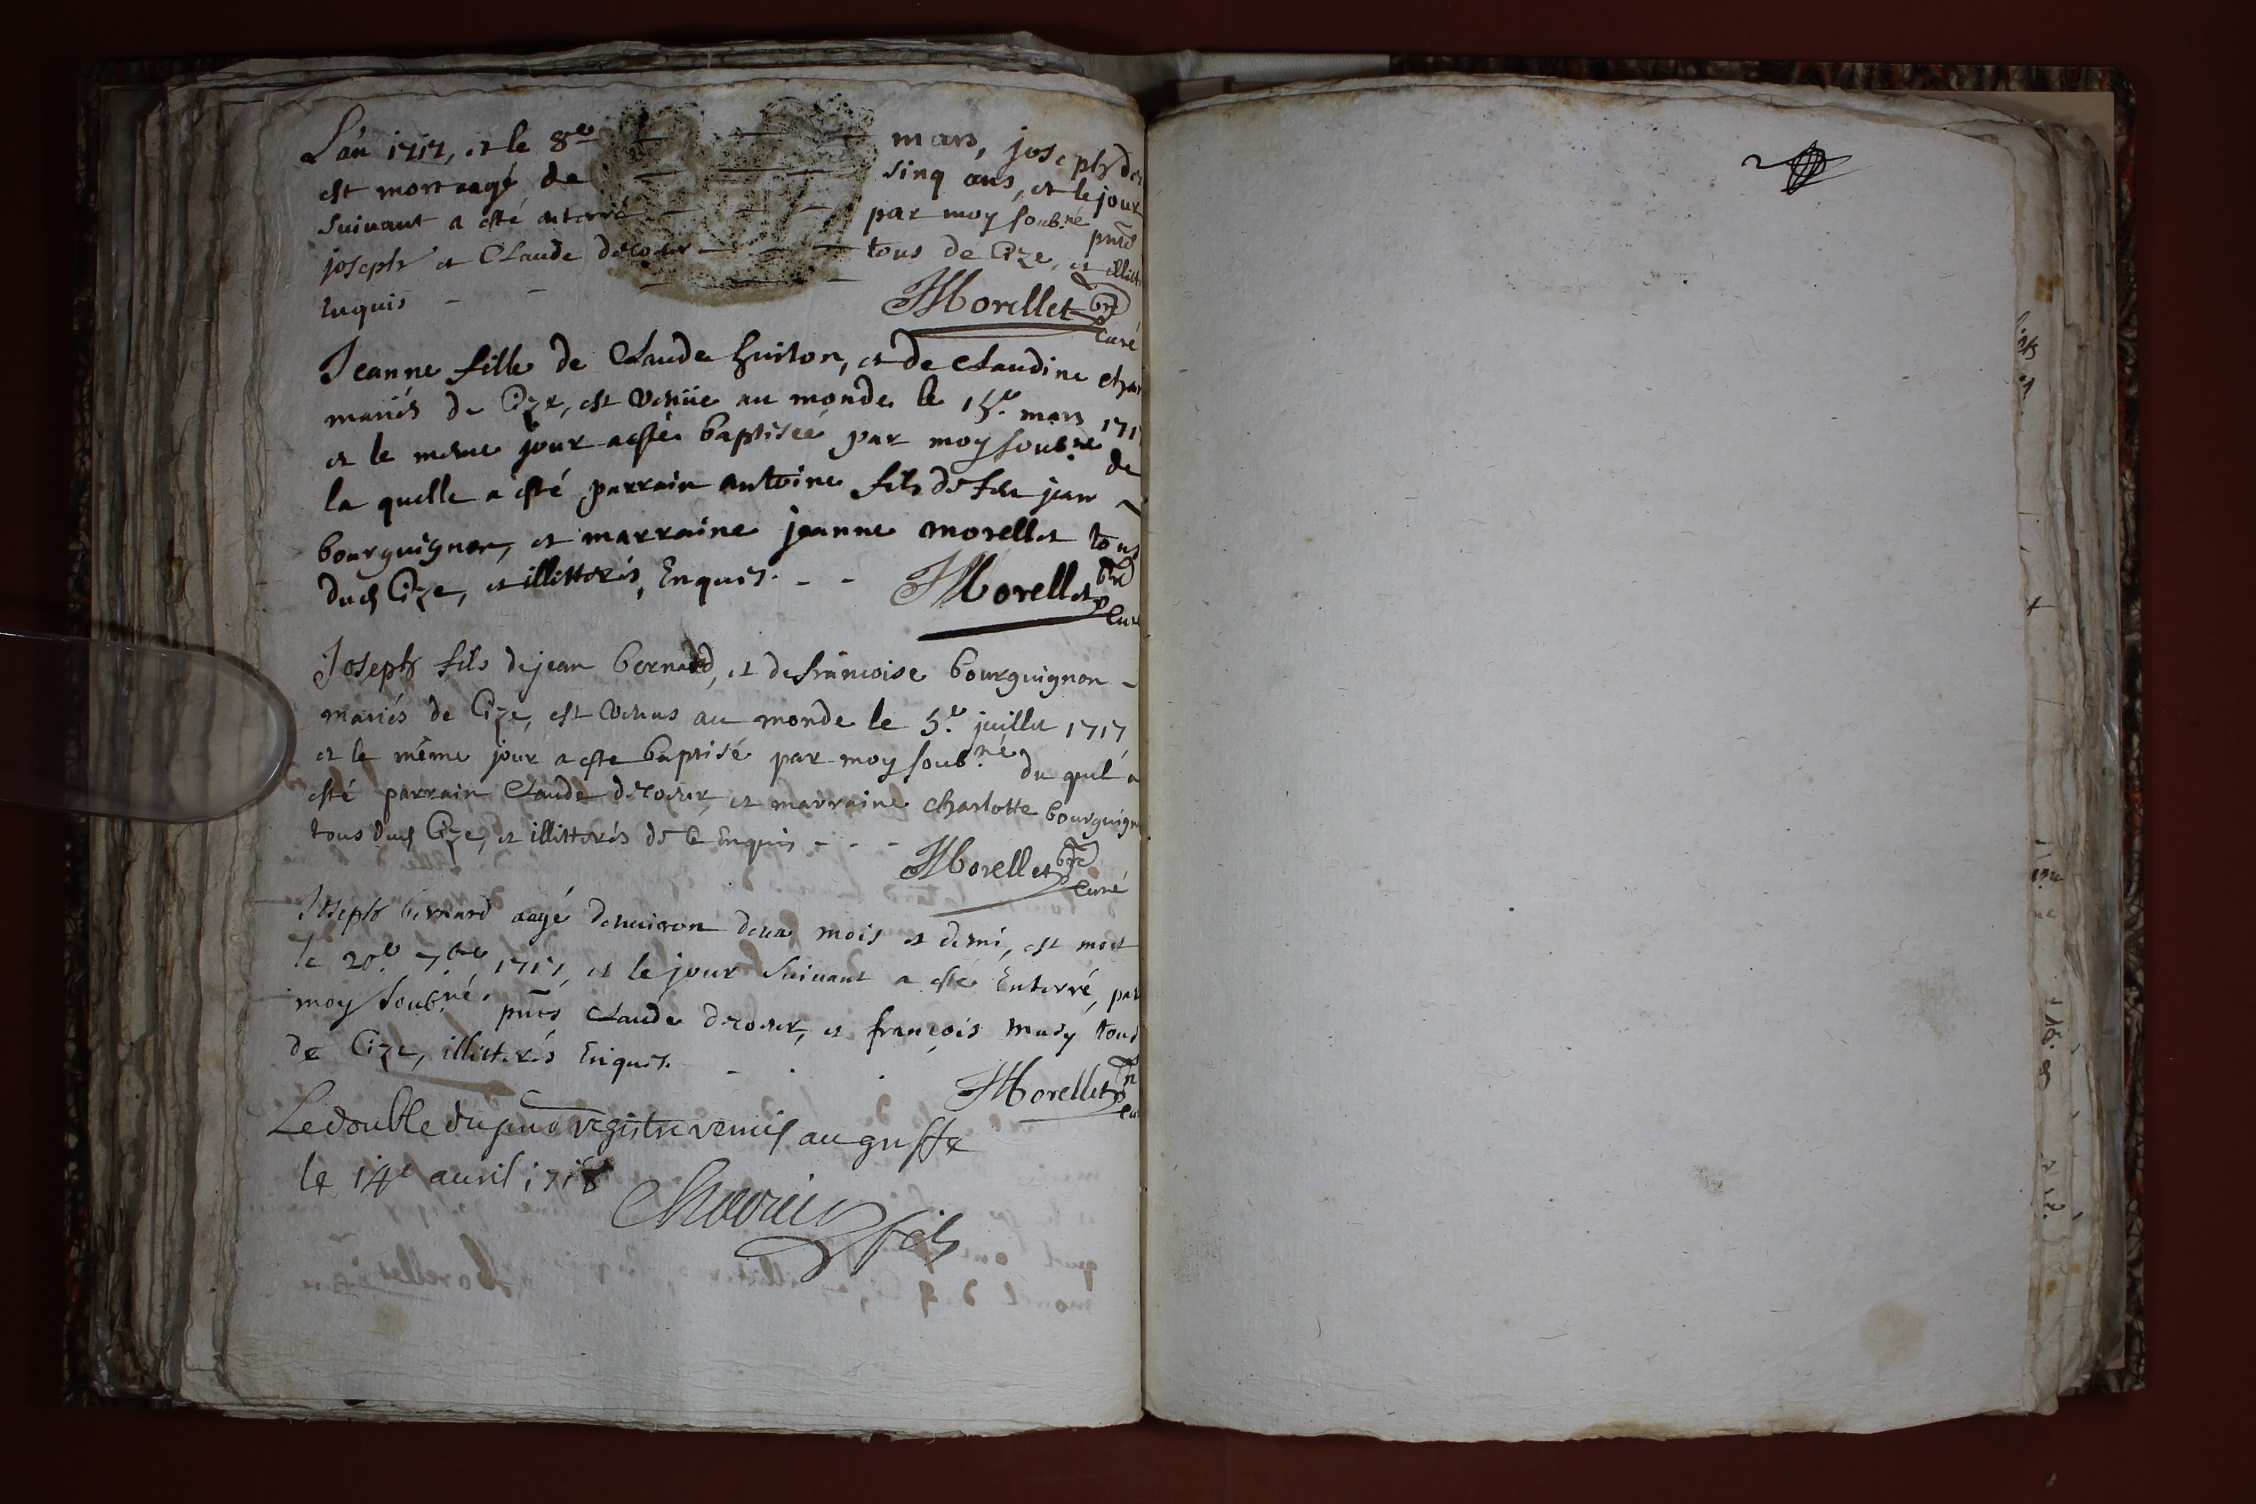 L'an 1717, et le 8e mars, joseph de
est mort aagé de sinq ans, et le jour
suivant a esté enterré par moy soub.né pnts
joseph et Claude decoeur tous de Cize, et illitt
Enquis
JMorellet ptre
Curé
Jeanne fille de Claude huiton, et de Claudine char
mariés de Cize, est venüe au monde le 15.e mars 171
et le meme jour a esté baptisée par moy soub.né de
la quelle a esté parrain antoine fils de feu jean
bourguignon, et marraine jeanne morellet tous
dud Cize, et illitterés, Enquis.
JMorellet ptre
Curé
Joseph fils de jean bernard, et de francoise bourguignon
mariés de Cize, est venus au monde le 5.e juillet 1717
et le même jour a esté baptisé par moy soub.né du quel a
esté parrain Claude decoeur, et marraine charlotte bourguign
tous dud Cize, et illitterés de ce Enquis
JMorellet ptre
Curé
Joseph bernard aagé denuiron deux mois et demi, est mort
le 20.e 7bre 1717, et le jour suivant a esté Enterré, par
moy soub.né. pnts Claude decoeur, et françois musy tous
de Cize, illitterés Enquis.
JMorellet
Le double du pnt registre remis au greffe
le 14e auril 1718
fils